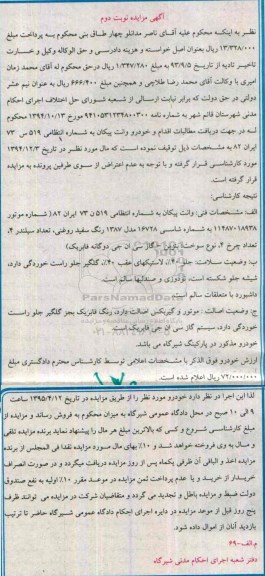 آگهی مزایده نوبت دوم
نظر به اینکه محکوم علیه آقای ناصر مدانلو چهار طاق بنی محکوم به پرداخت مبلغ
۱۳/۳۴۸/۰۰۰ ریال بعنوان اصل خواسته و هزینه دادرسی و حق الوکاله وکیل و خسارت
تاخیر تادیه از تاریخ ۹۳/۸/۵ به مبلغ ۱/۳۴۷/۲۸۰ ریال در حق محکوم له آقای محمد زمان
امیری با وکالت آقای محمد رضا طلاچی و همچنین مبلغ ۶۶۶/۴۰۰ ریال به عنوان نیم عشر
دولتی در حق دولت که برابر نیابت ارسالی از شعبه شورای حل اختلاف اجرای احکام
مدنی شهرستان قائم شهر به شماره نامه ۹۴۱۰۵۳۱۲۳۴۸۰۰۳۰۰ مورخ ۱۳۹۴/۱۰/۱۳ محکوم
له در جهت دریافت مطالبات اقدام و خودرو وانت پیکان به شماره انتظامی ۵۱۹ س ۷۳
ایران ۸۲ به مشخصات ذیل توقیف نموده است که مال مورد نظر در تاریخ ۱۳۹۴/۱۲/۳
مورد کارشناسی قرار گرفته و با توجه به عدم اعتراض از سوی طرفین پرونده به مزایده
قرار گرفته است.
نتیجه کارشناسی:
الف: مشخصات فنی: وانت پیکان به شماره انتظامی ۵۱۹ن ۷۳ ایران ۸۲( شماره موتور
۱۱۴۸۷۰۱۸۹۳۸ به شماره شاسی ۱۶۷۲۸ مدل ۱۳۸۷ رنگ سفید روغنی، تعداد سیلندر ۴،
تعداد چرخ ۴، نوع سوخت بنزین -گاز سی ان جی دوگانه فابریک)
ب: وضعیت سلامت: جلو ۴۰٪ لاستیکهای عقب ۶۰٪، گلگیر جلو راست خوردگی دارد،
شیشه جلو شکسته است، تودوزی و صندلیها سالم است.
داشبورد با متعلقات سالم است.
ج: وضعیت اصالت : موتور و گیربکس اصالت دارد، رنگ فابریک بجز گلگیر جلو راست
خوردگی دارد، سیستم گاز سی ان جی فابریک است.
خودرو مذکور در پارکینگ شیرگاه می باشد.
ارزش خودرو فوق الذکر با مشخصات اعلامی توسط کارشناس محترم دادگستری مبلغ
۷۲/۰۰۰/۰۰۰ ریال اعلام شده است.
لذا این اجرا در نظر دارد خودرو مورد نظر را از طریق مزایده در تاریخ ۱۳۹۵/۴/۱۲ ساعت
۹ الی ۱۰ صبح در محل دادگاه عمومی شیرگاه به میزان محکوم به فروش رساند و مزایده از
مبلغ کارشناسی شروع و کسی که بالاترین مبلغ هر مال را پیشنهاد نماید برنده مزایده تلقی
و مال به وی فروخته خواهد شد و ۱۰٪ بهای مال مورد مزایده نقدا فی المجلس از برنده
مزایده اخذ و الباقی آن ظرفی یکماه پس از روز مزایده دریافت میگردد و در صورت انصراف
خریدار از خرید و یا عدم پرداخت ثمن مزایده در موعد مقرر ۱۰٪ اولیه به نفع صندوق
دولت ضبط و مزایده باطل و تجدید می گردد و متقاضیان شرکت در مزایده می توانند ظرف
پنج روز قبل از موعد مزایده در دایره اجرای احکام دادگاه عمومی شیرگاه حاضر تا ترتیب
بازدید آنان از اموال داده شود.
م.الف-۶۹۰
دفتر شعبه اجرای احکام مدنی شیرگاه